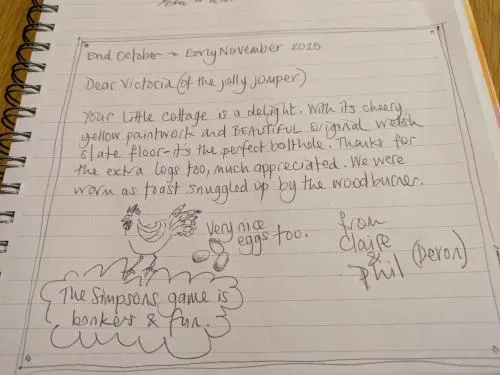 End October → Early November 2025
Dear Victoria (of the jolly jumper)
Your little cottage is a delight. With its cheery
yellow paintwork and BEAUTIFUL original welsh
slate floor - it's the perfect bolthole. Thanks for
the extra logs too, much appreciated. We were
warm as toast snuggled up by the woodburner.
Very nice
eggs too.
from
Claire
&
Phil (Devon)
The Simpsons game is
bonkers & fun.